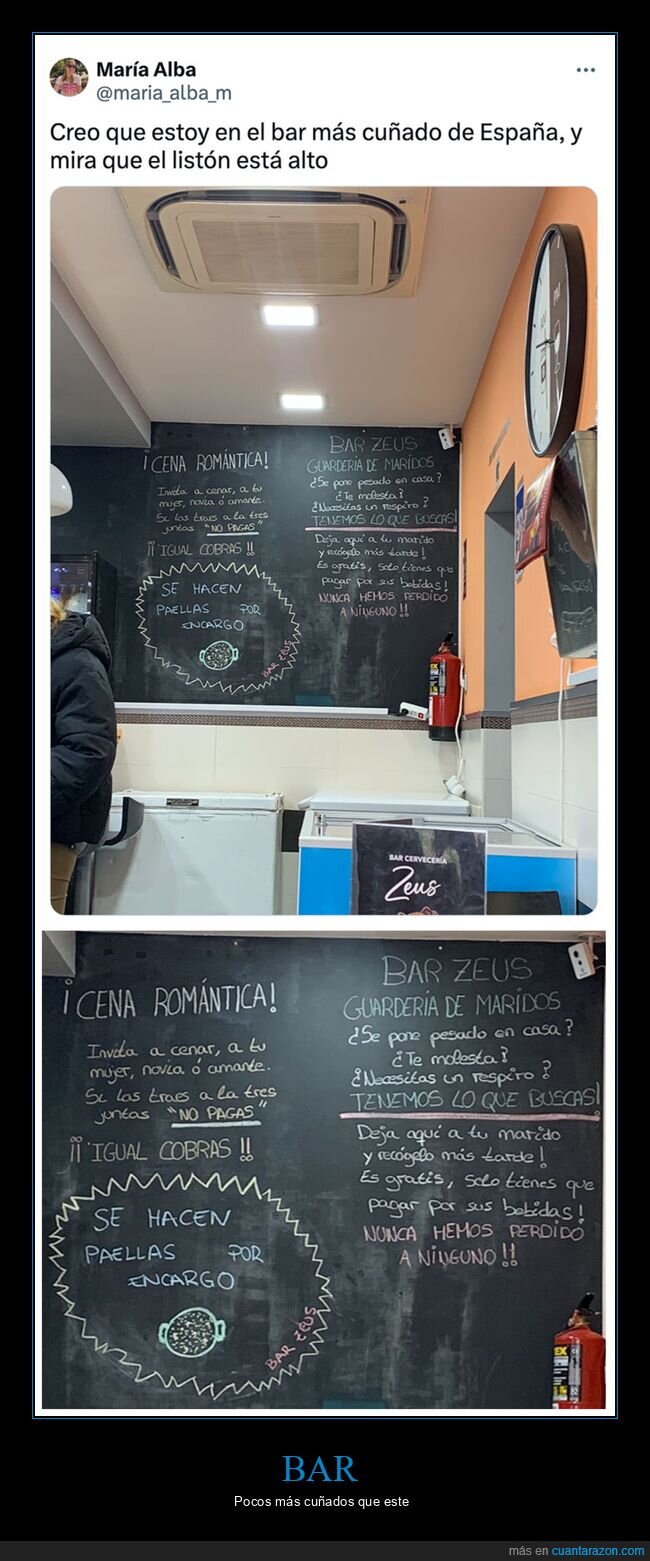 María Alba
@maria_alba_m
Creo que estoy en el bar más cuñado de España, y
mira que el listón está alto
¡CENA ROMÁNTICA!
Invita a cenar, a tu
mujer, novia o amante.
Si las traes a la tres
juntas "NO PAGAS"
¡¡ IGUAL COBRAS !!
SE HACEN
PAELLAS POR
ENCARGO
BAR ZEUS
BAR ZEUS
GUARDERÍA DE MARIDOS
¿Se pone pesado en casa?
¿Te molesta?
¿Necesitas un respiro?
TENEMOS LO QUE BUSCAS!
Deja aquí a tu marido
y recógelo más tarde!
Es gratis, solo tienes que
pagar por sus bebidas!
NUNCA HEMOS PERDIDO
A NINGUNO!!
BAR CERVECERÍA
Zeus
¡CENA ROMÁNTICA!
Invita a cenar, a tu
mujer, novia ó amante.
Si las traes a la tres
juntas "NO PAGAS"
¡¡ IGUAL COBRAS !!
SE HACEN
PAELLAS POR
ENCARGO
BAR ZEUS
BAR ZEUS
GUARDERÍA DE MARIDOS
¿Se pone pesado en casa?
¿Te molesta?
¿Necesitas un respiro?
TENEMOS LO QUE BUSCAS!
Deja aquí a tu marido
y recógelo más tarde!
Es gratis, solo tienes que
pagar por sus bebidas!
NUNCA HEMOS PERDIDO
A NINGUNO!!
BAR
Pocos más cuñados que este
más en cuantarazon.com